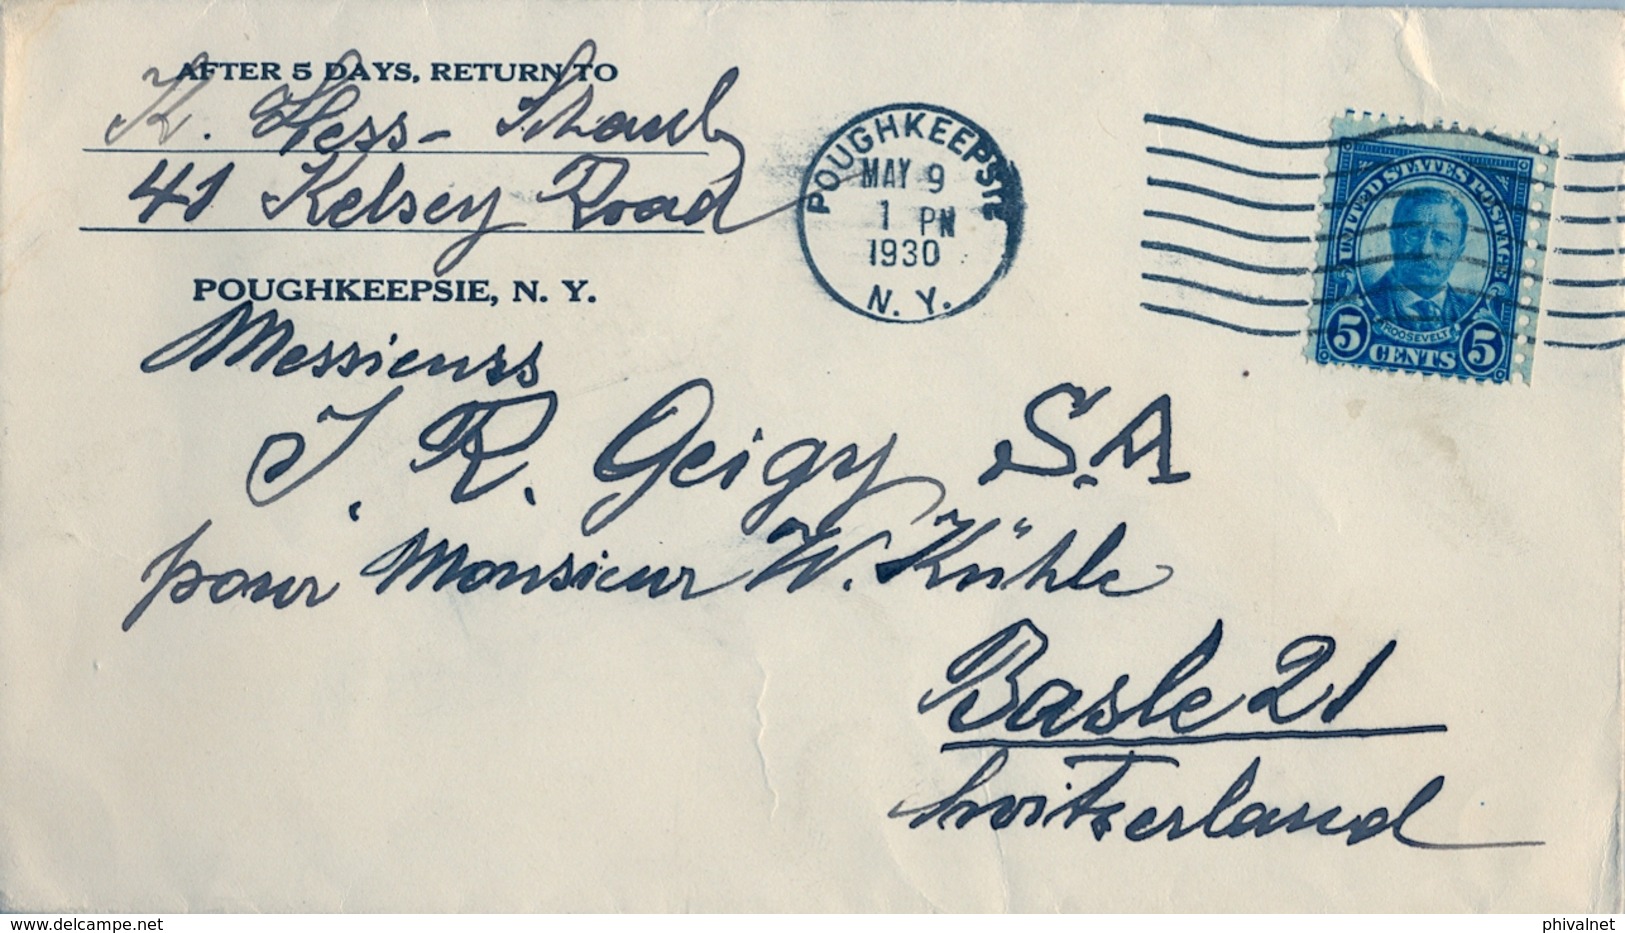 AFTER 5 DAYS, RETURN TO
K. Hess-Schaub
41 Kelsey Road
POUGHKEEPSIE, N. Y.
POUGHKEEPSIE
MAY 9
1 PM
1930
N. Y.
UNITED STATES POSTAGE
ROOSEVELT
5 CENTS 5
Messieurs
J. R. Geigy S.A
pour Monsieur W. Kühle
Basle 21
Switzerland
www.delcampe.net
phivalnet